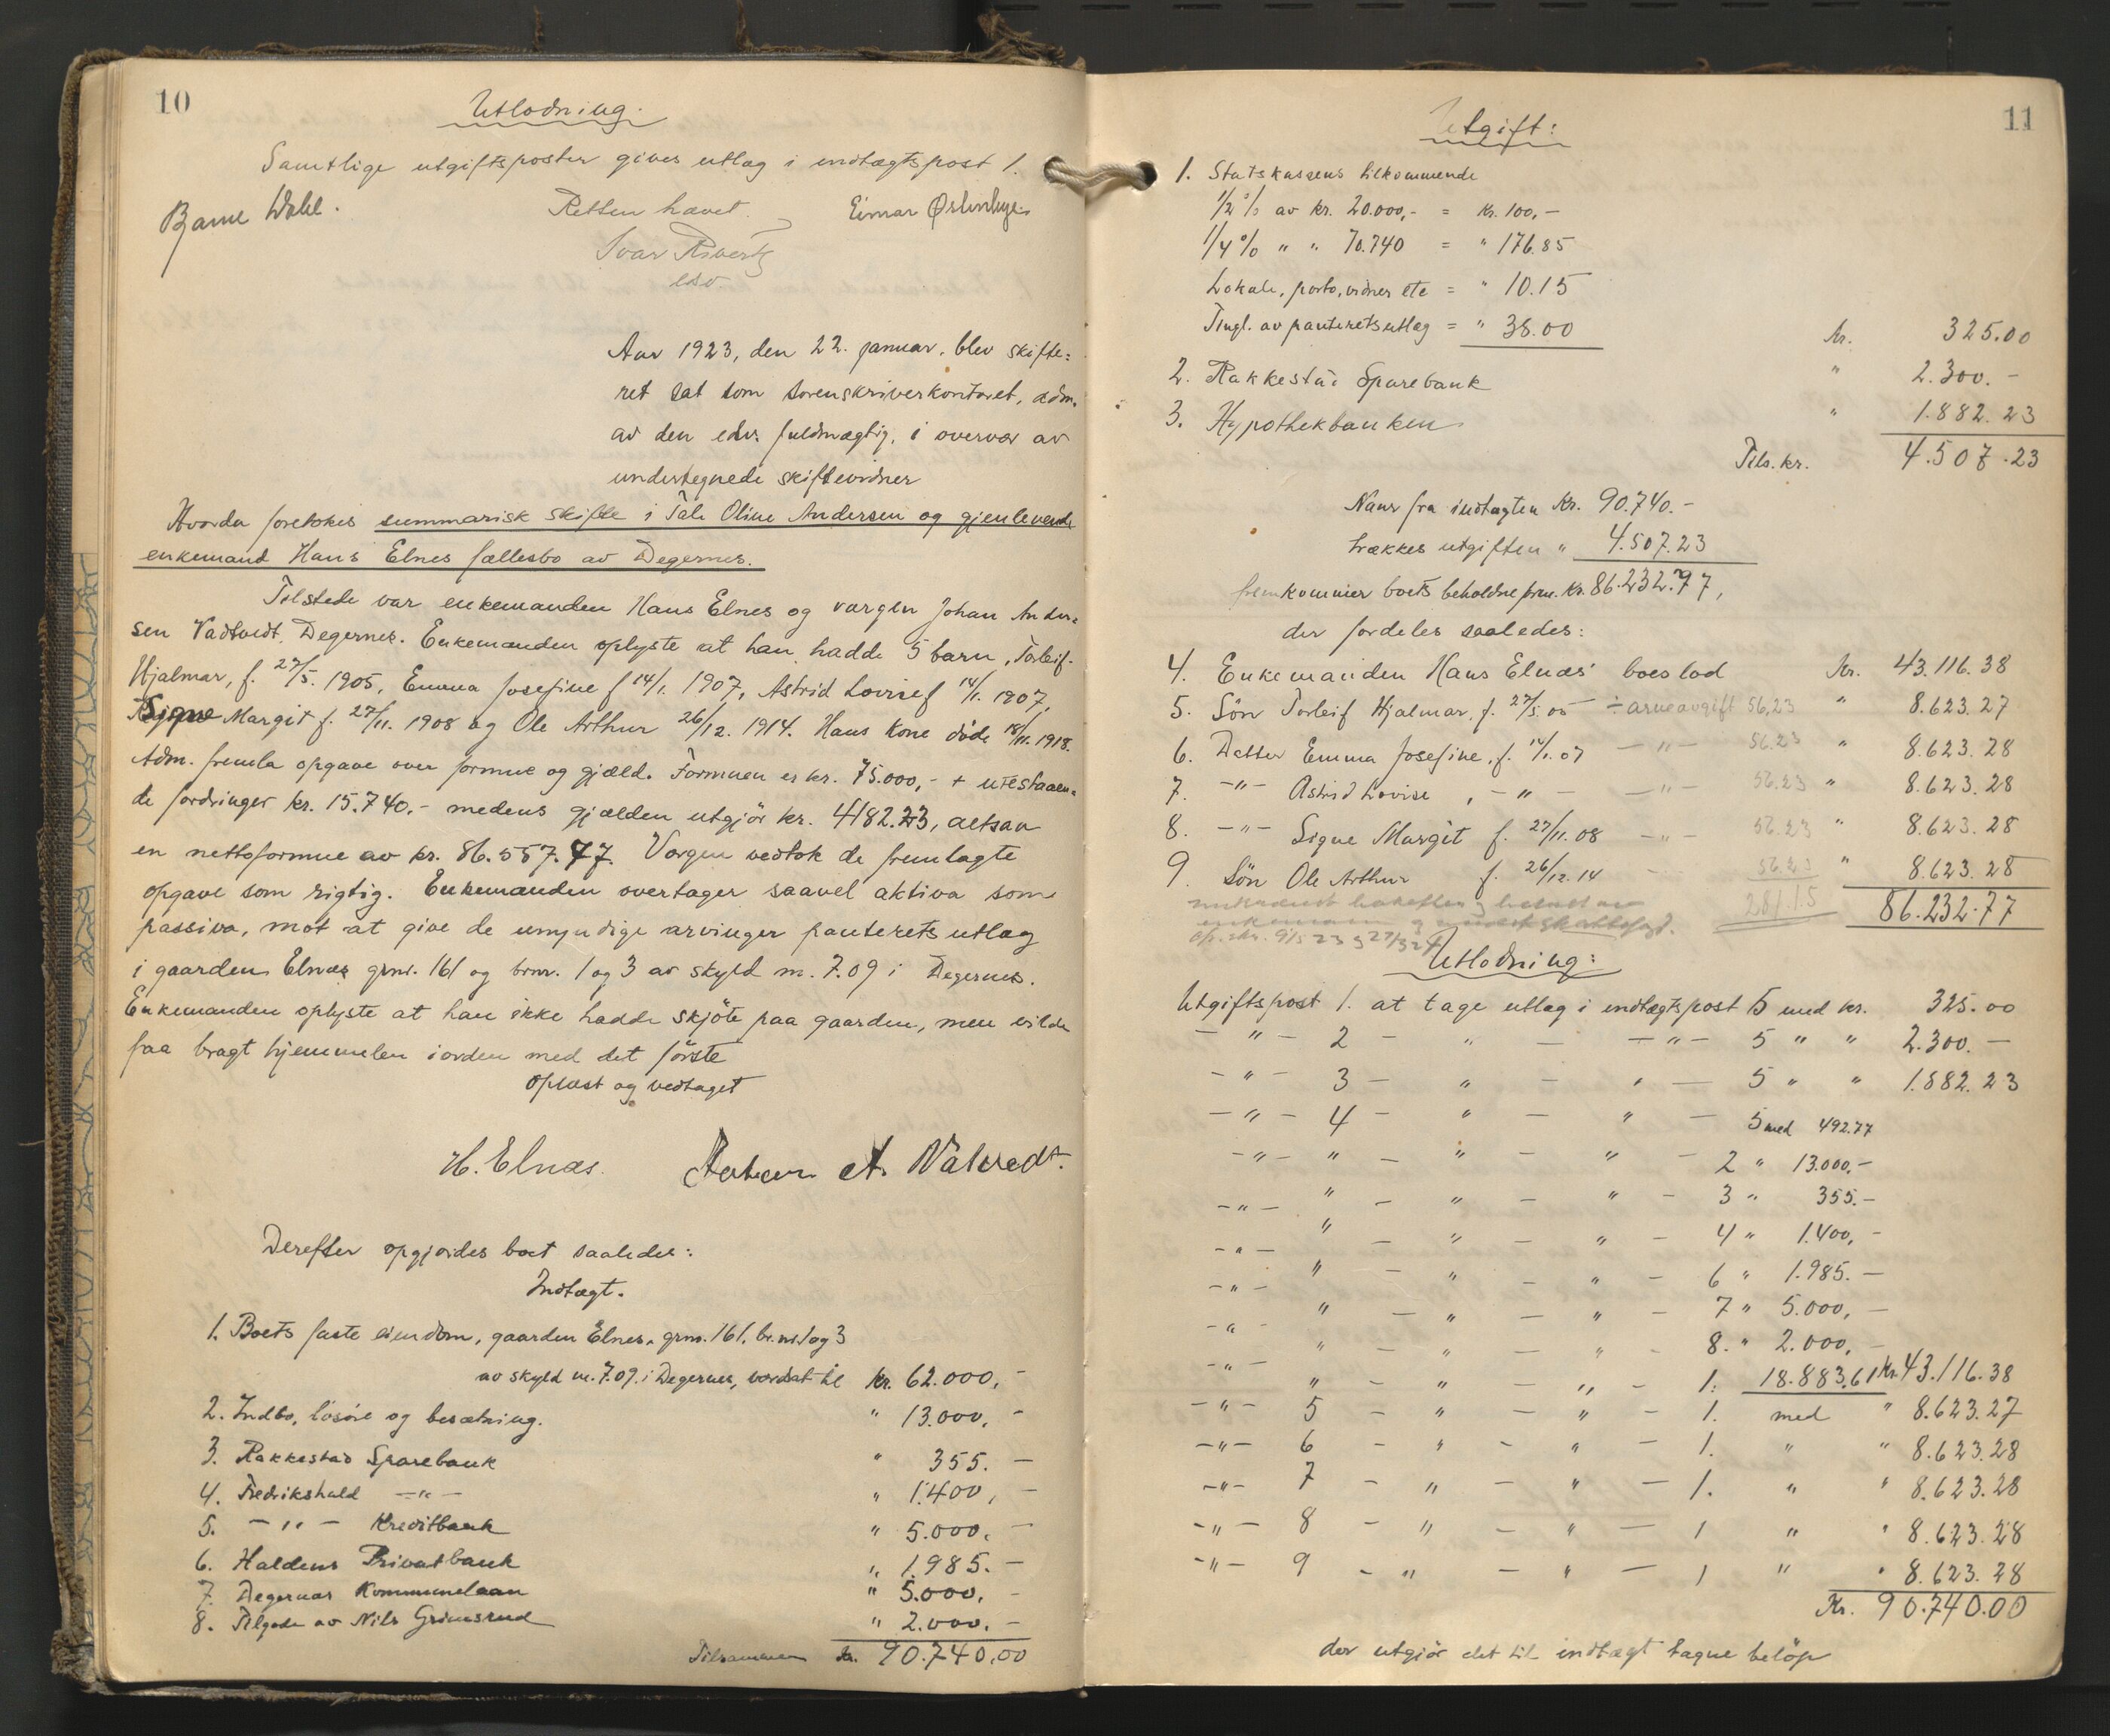 10
Utlodning.
Samtlige utgiftsposter gives utlæg i indtægtspost 1.
Retten hævet.
Aar 1923, den 22. januar, blev skifte=
ret sat som sorenskriverkontoret, adm.
av den edsv. fuldmægtig, i overvær av
undertegnede skiftevidner
Hvorda foretokes summarisk skifte i Tale Oline Andersen og gjenlevende
enkemand Hans Elnes fællesbo av Degernes.
Tilstede var enkemanden Hans Elnes og vergen Johan Ander=
sen Vadtvedt, Degernes. Enkemanden oplyste at han hadde 5 barn, Torleif-
Hjalmar, f. 27/5. 1905, Emma Josefine f 14/1. 1907, Astrid Lovise f 14/1. 1907,
Signe Margit f. 27/11. 1908 og Ole Arthur 26/12. 1914. Hans kone døde 18/11. 1918.
Adm. fremla opgave over formue og gjæld. Formuen er kr. 75.000,- + utestaaen=
de fordringer kr. 15.740.- medens gjælden utgjør kr. 4182.23, altsaa
en nettoformue av kr. 86.557.77. Vergen vedtok de fremlagte
opgave som rigtig. Enkemanden overtager saavel aktiva som
passiva, mot at give de umyndige arvinger panterets utlæg
i gaarden Elnæs grnr. 161 og brnr. 1 og 3 av skyld m. 7.09 i Degernes.
Enkemanden oplyste at han ikke hadde skjöte paa gaarden, men vilde
faa bragt hjemmelen iorden med det förste
Oplæst og vedtaget
H. Elnæs. Johan A. Vatvedt.
Derefter opgjordes boet saaledes:
Indtægt.
1. Boets faste eiendom, gaarden Elnes, grnr. 161. br.nr. 1 og 3
av skyld m. 7.09. i Degernes, værdsat til kr. 62.000,-
2. Indbo, lösöre og besætning. " 13.000,-
3. Rakkestad Sparebank " 355.-
4. Fredrikshald -"- " 1.400,-
5. -"- Kreditbank " 5.000,-
6. Haldens Privatbank " 1.985.-
7. Degernæs Kommunelaan " 5.000,-
8. Tilgode av Nils Grimsrud " 2.000.-
Tilsammen kr. 90.740,00
11
Utgift:
1. Statskassens tilkommende
1/2 % av kr. 20.000,- = kr. 100,-
1/4 % " " 70.740 = " 176.85
Lokale, porto, vidner etc = " 10.15
Tingl. av panteretsutlæg = " 38.00 kr. 325.00
2. Rakkestad Sparebank " 2.300.-
3. Hypothekbanken " 1.882.23
Tils. kr. 4.507.23
Naar fra indtægten kr. 90.740.-
trækkes utgiften " 4.507.23
fremkommer boets beholdne form. kr. 86.232.77,
der fordeles saaledes:
4. Enkemanden Hans Elnæs' boeslod kr. 43.116.38
5. Sön Torleif Hjalmar, f. 27/5. 05 ÷ arveavgift 56,23 " 8.623.27
6. Datter Emma Josefine, f. 14/1. 07 -"- 56.23 " 8.623.28
7. -"- Astrid Lovise, -"- -"- 56.23 " 8.623.28
8. -"- Signe Margit f. 27/11. 08 -"- 56.23 " 8.623.28
9. Sön Ole Arthur f. 26/12. 14 - 56.23 " 8.623.28
281.15 86.232.77
Utlodning:
Utgiftspost 1. at tage utlæg i indtægtspost 5 med kr. 325.00
-"- 2 - " - -"- 5 " " 2.300.-
-"- 3 - " - " - 5 " " 1.882.23
-"- 4 - " - " - 5 med 492.77
-"- " - " - " - 2 " 13.000.-
-"- " - " - " - 3 " 355.-
-"- " - " - " - 4 " 1.400,-
-"- " - " - " - 6 " 1.985.-
-"- " - " - " - 7 " 5.000,-
-"- " - " - " - 8. " 2.000,-
-"- " - " - " - 1. 18.883.61 kr. 43.116.38
-"- 5 - " - " - 1. med " 8.623.27
-"- 6 - " - " - 1. " " 8.623.28
-"- 7 - " - " - 1. " " 8.623.28
-"- 8 - " - " - 1 " " 8.623.28
-"- 9 - " - " - 1 " " 8.623.28
Kr. 90.740.00
der utgiör det til indtægt tagne belöp